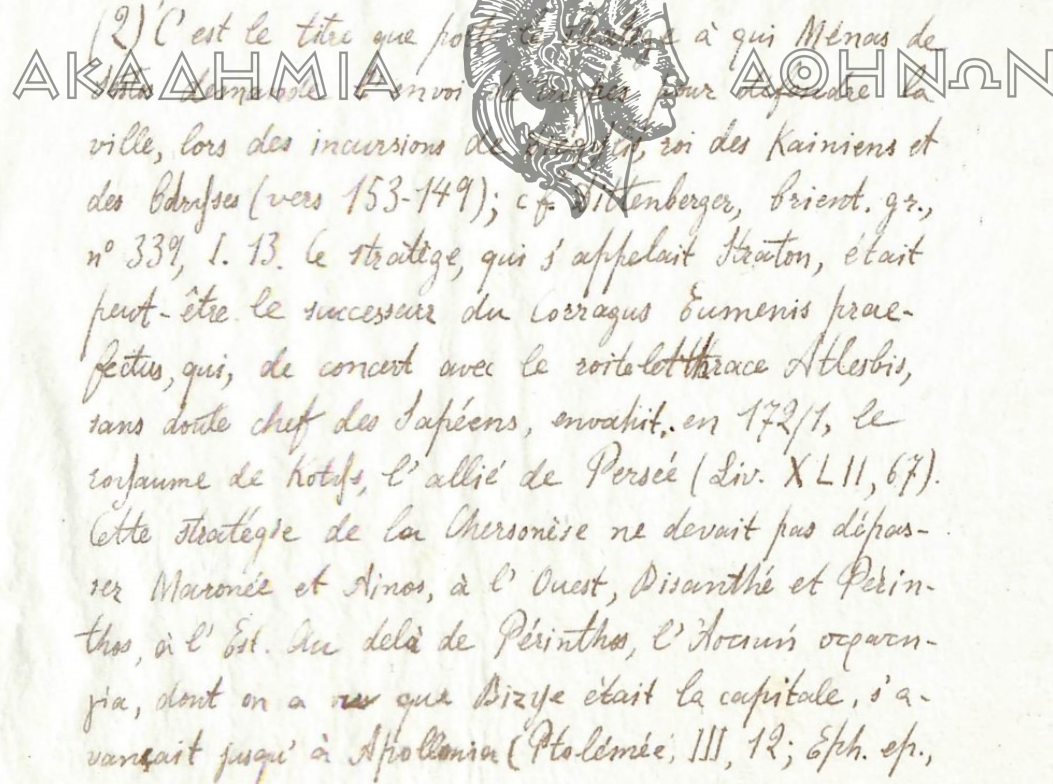 (2) C'est le titre que porte le stratège à qui Ménas de
ΑΚΑΔΗΜΙΑ ΑΘΗΝΩΝ
Sestos demande l'envoi de pour défendre la
ville, lors des incursions de roi des Kainiens et
des Odryses (vers 153-149); cf. Dittenberger, Orient. gr.,
n° 339, l. 13. Ce stratège, qui s'appelait Straton, était
peut-être le successeur du Corragus Eumenis prae-
fectus, qui, de concert avec le roitelet thrace Atlesbis,
sans doute chef des Sapéens, envahit, en 172/1, le
royaume de Kotys, l'allié de Persée (Liv. XLII, 67).
Cette stratégie de la Chersonèse ne devait pas dépas-
ser Maronée et Ainos, à l'Ouest, Bisanthé et Périn-
thos, à l'Est. Au delà de Périnthos, l'
dont on a vu que Bizye était la capitale, s'a-
vançait jusqu'à Apollonia (Ptolémée, III, 12; Eph. ep.,